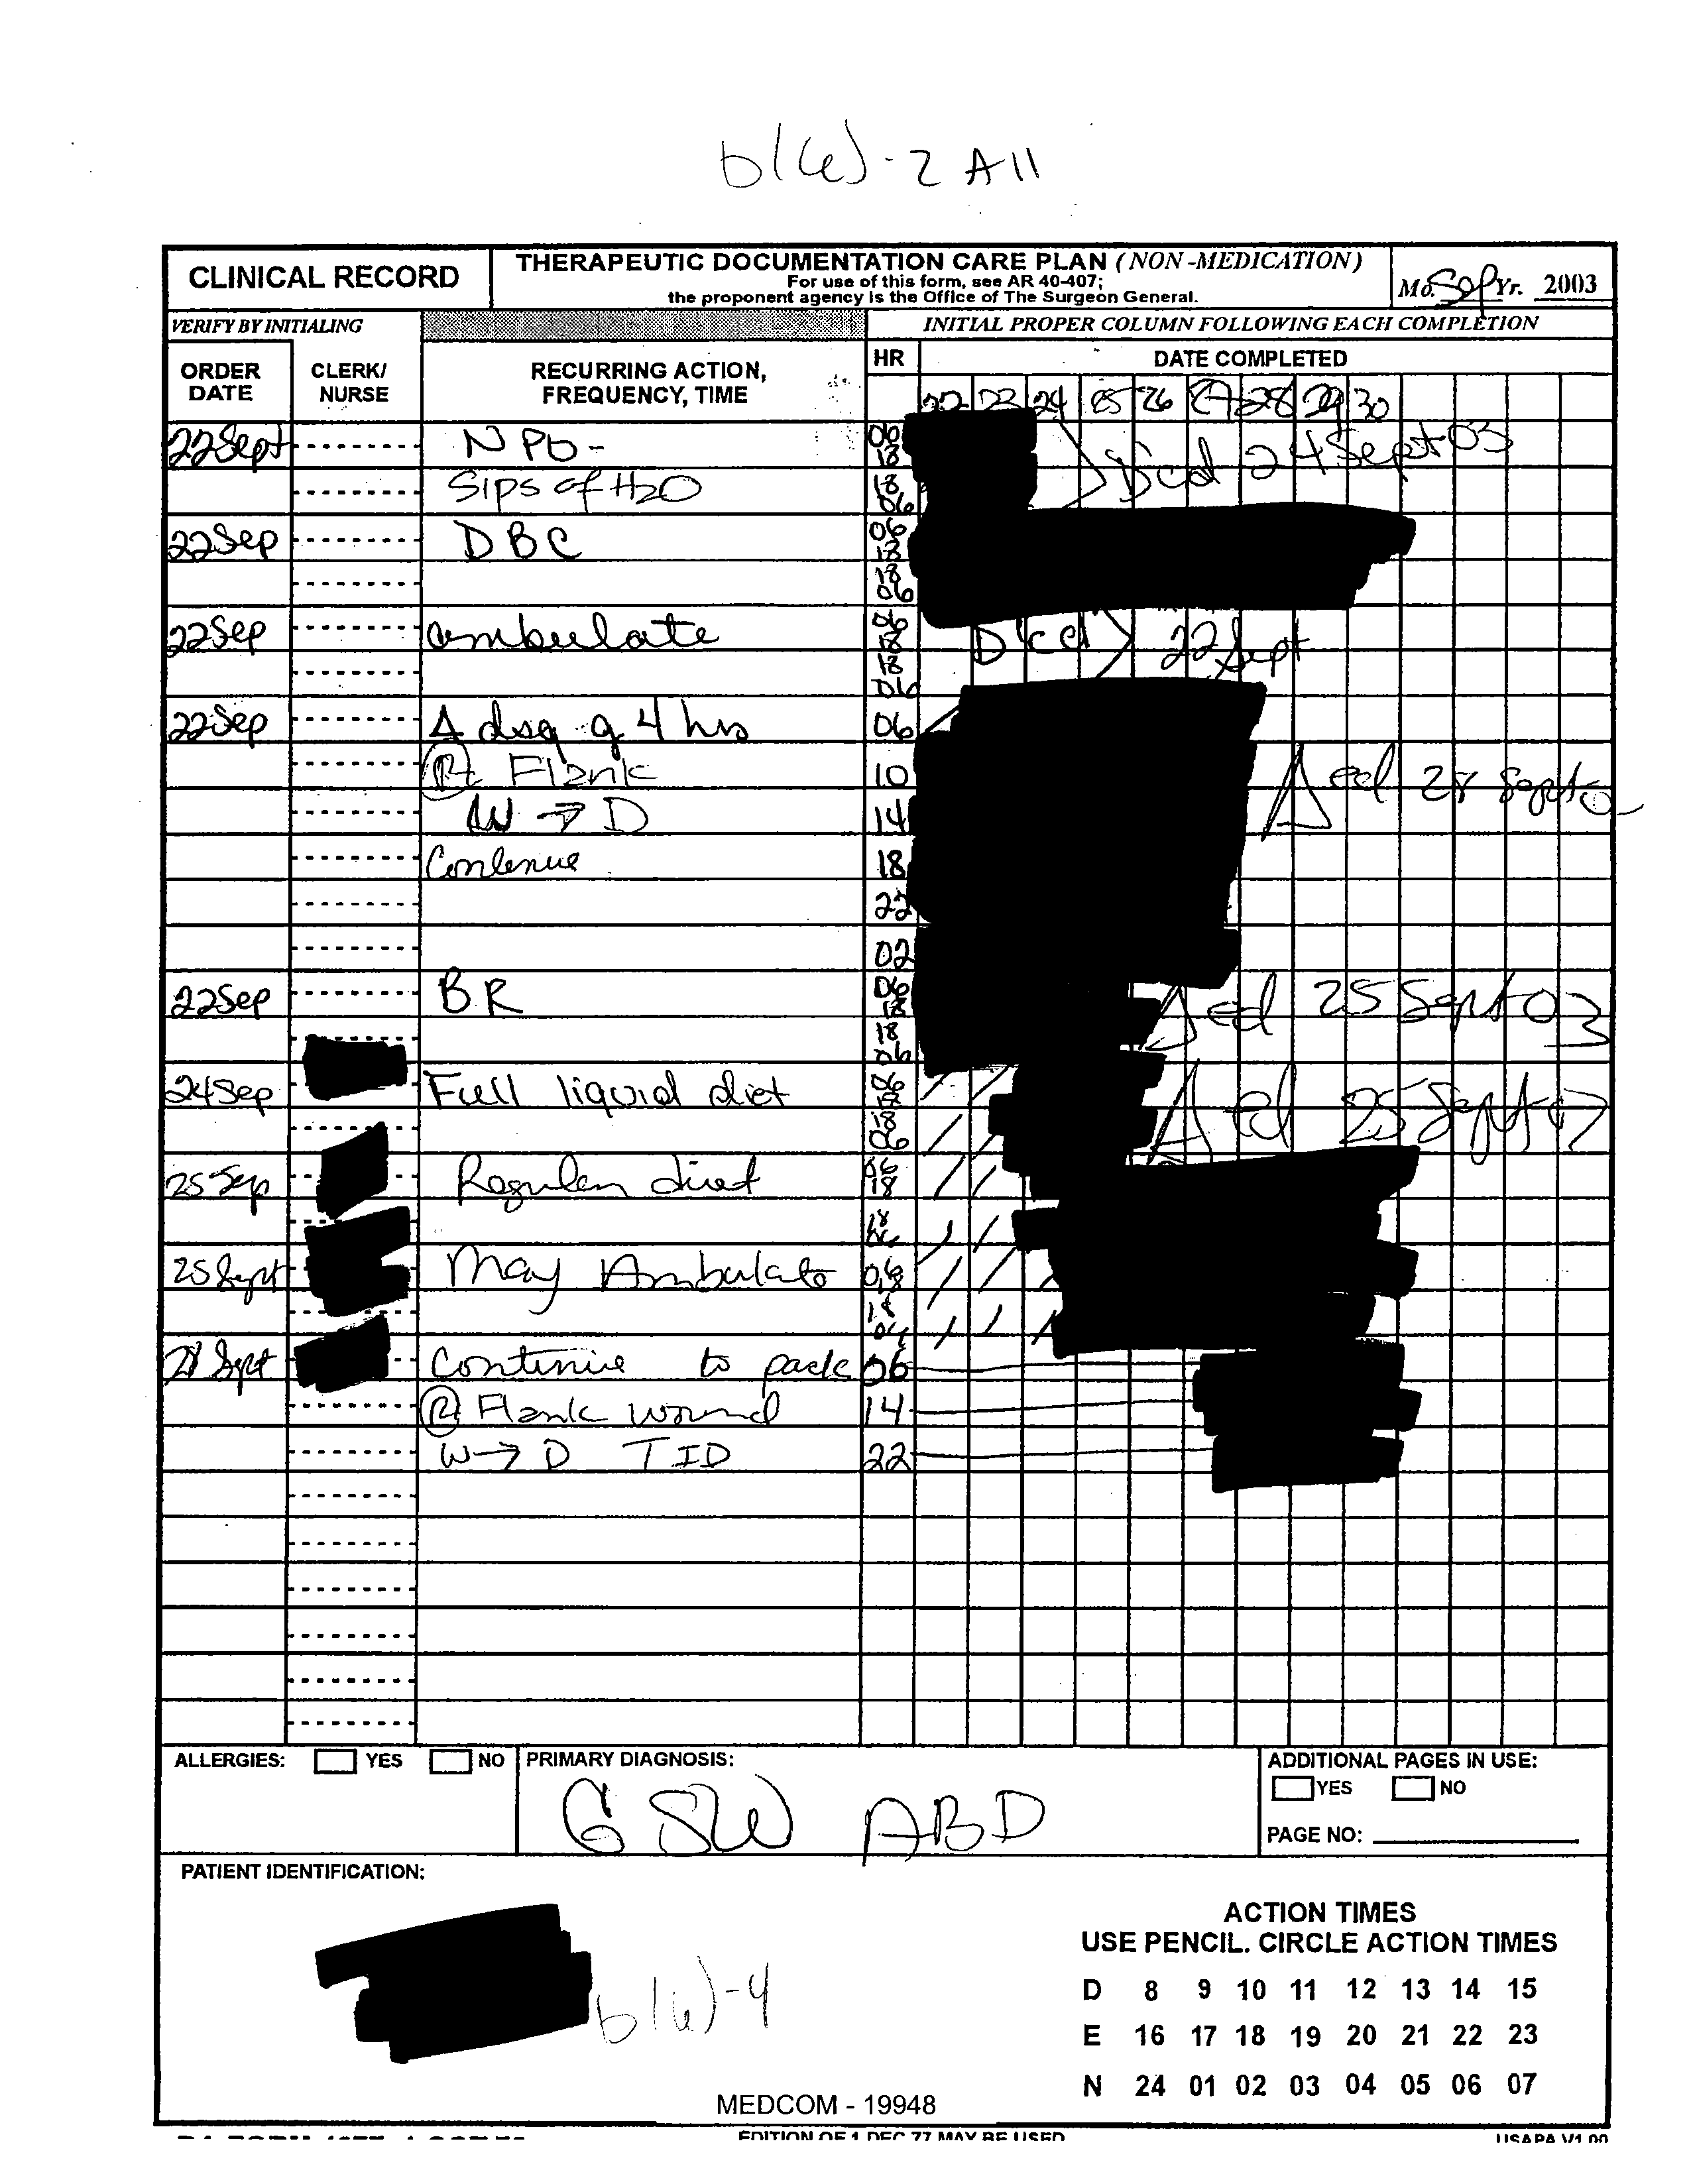 b(6)-2 All
CLINICAL RECORD
THERAPEUTIC DOCUMENTATION CARE PLAN (NON-MEDICATION)
For use of this form, see AR 40-407;
the proponent agency is the Office of The Surgeon General.
Mo. Sep Yr. 2003
VERIFY BY INITIALING
INITIAL PROPER COLUMN FOLLOWING EACH COMPLETION
ORDER DATE
CLERK/ NURSE
RECURRING ACTION, FREQUENCY, TIME
HR
DATE COMPLETED
22 23 24 25 26 27 28 29 30
22Sept NPO- 06 18 D'cd 24 Sept 03
Sips of H2O 18 06
22Sep DBC 06 18
18 06
22Sep ambulate 06 18 D'cd 22 Sept
18 06
22Sep Δ dsg q 4 hrs 06
Rt Flank 10 Δed 28 Sept
W → D 14
Contenue 18
22
02
22Sep BR 06 18 Δed 25 Sept 03
18 06
24Sep Full liquid diet 06 18 Δed 25 Sept 03
18 06
25 Sep Regular diet 06 18
18 06
25 Sept May Ambulate 06 18
18 06
28 Sept Continue to pack 06
R Flank wound 14
W → D TID 22
ALLERGIES: YES NO
PRIMARY DIAGNOSIS:
GSW ABD
ADDITIONAL PAGES IN USE:
YES NO
PAGE NO:
PATIENT IDENTIFICATION:
b(6)-4
ACTION TIMES
USE PENCIL. CIRCLE ACTION TIMES
D 8 9 10 11 12 13 14 15
E 16 17 18 19 20 21 22 23
N 24 01 02 03 04 05 06 07
MEDCOM - 19948
EDITION OF 1 DEC 77 MAY BE USED
USAPA V1.00